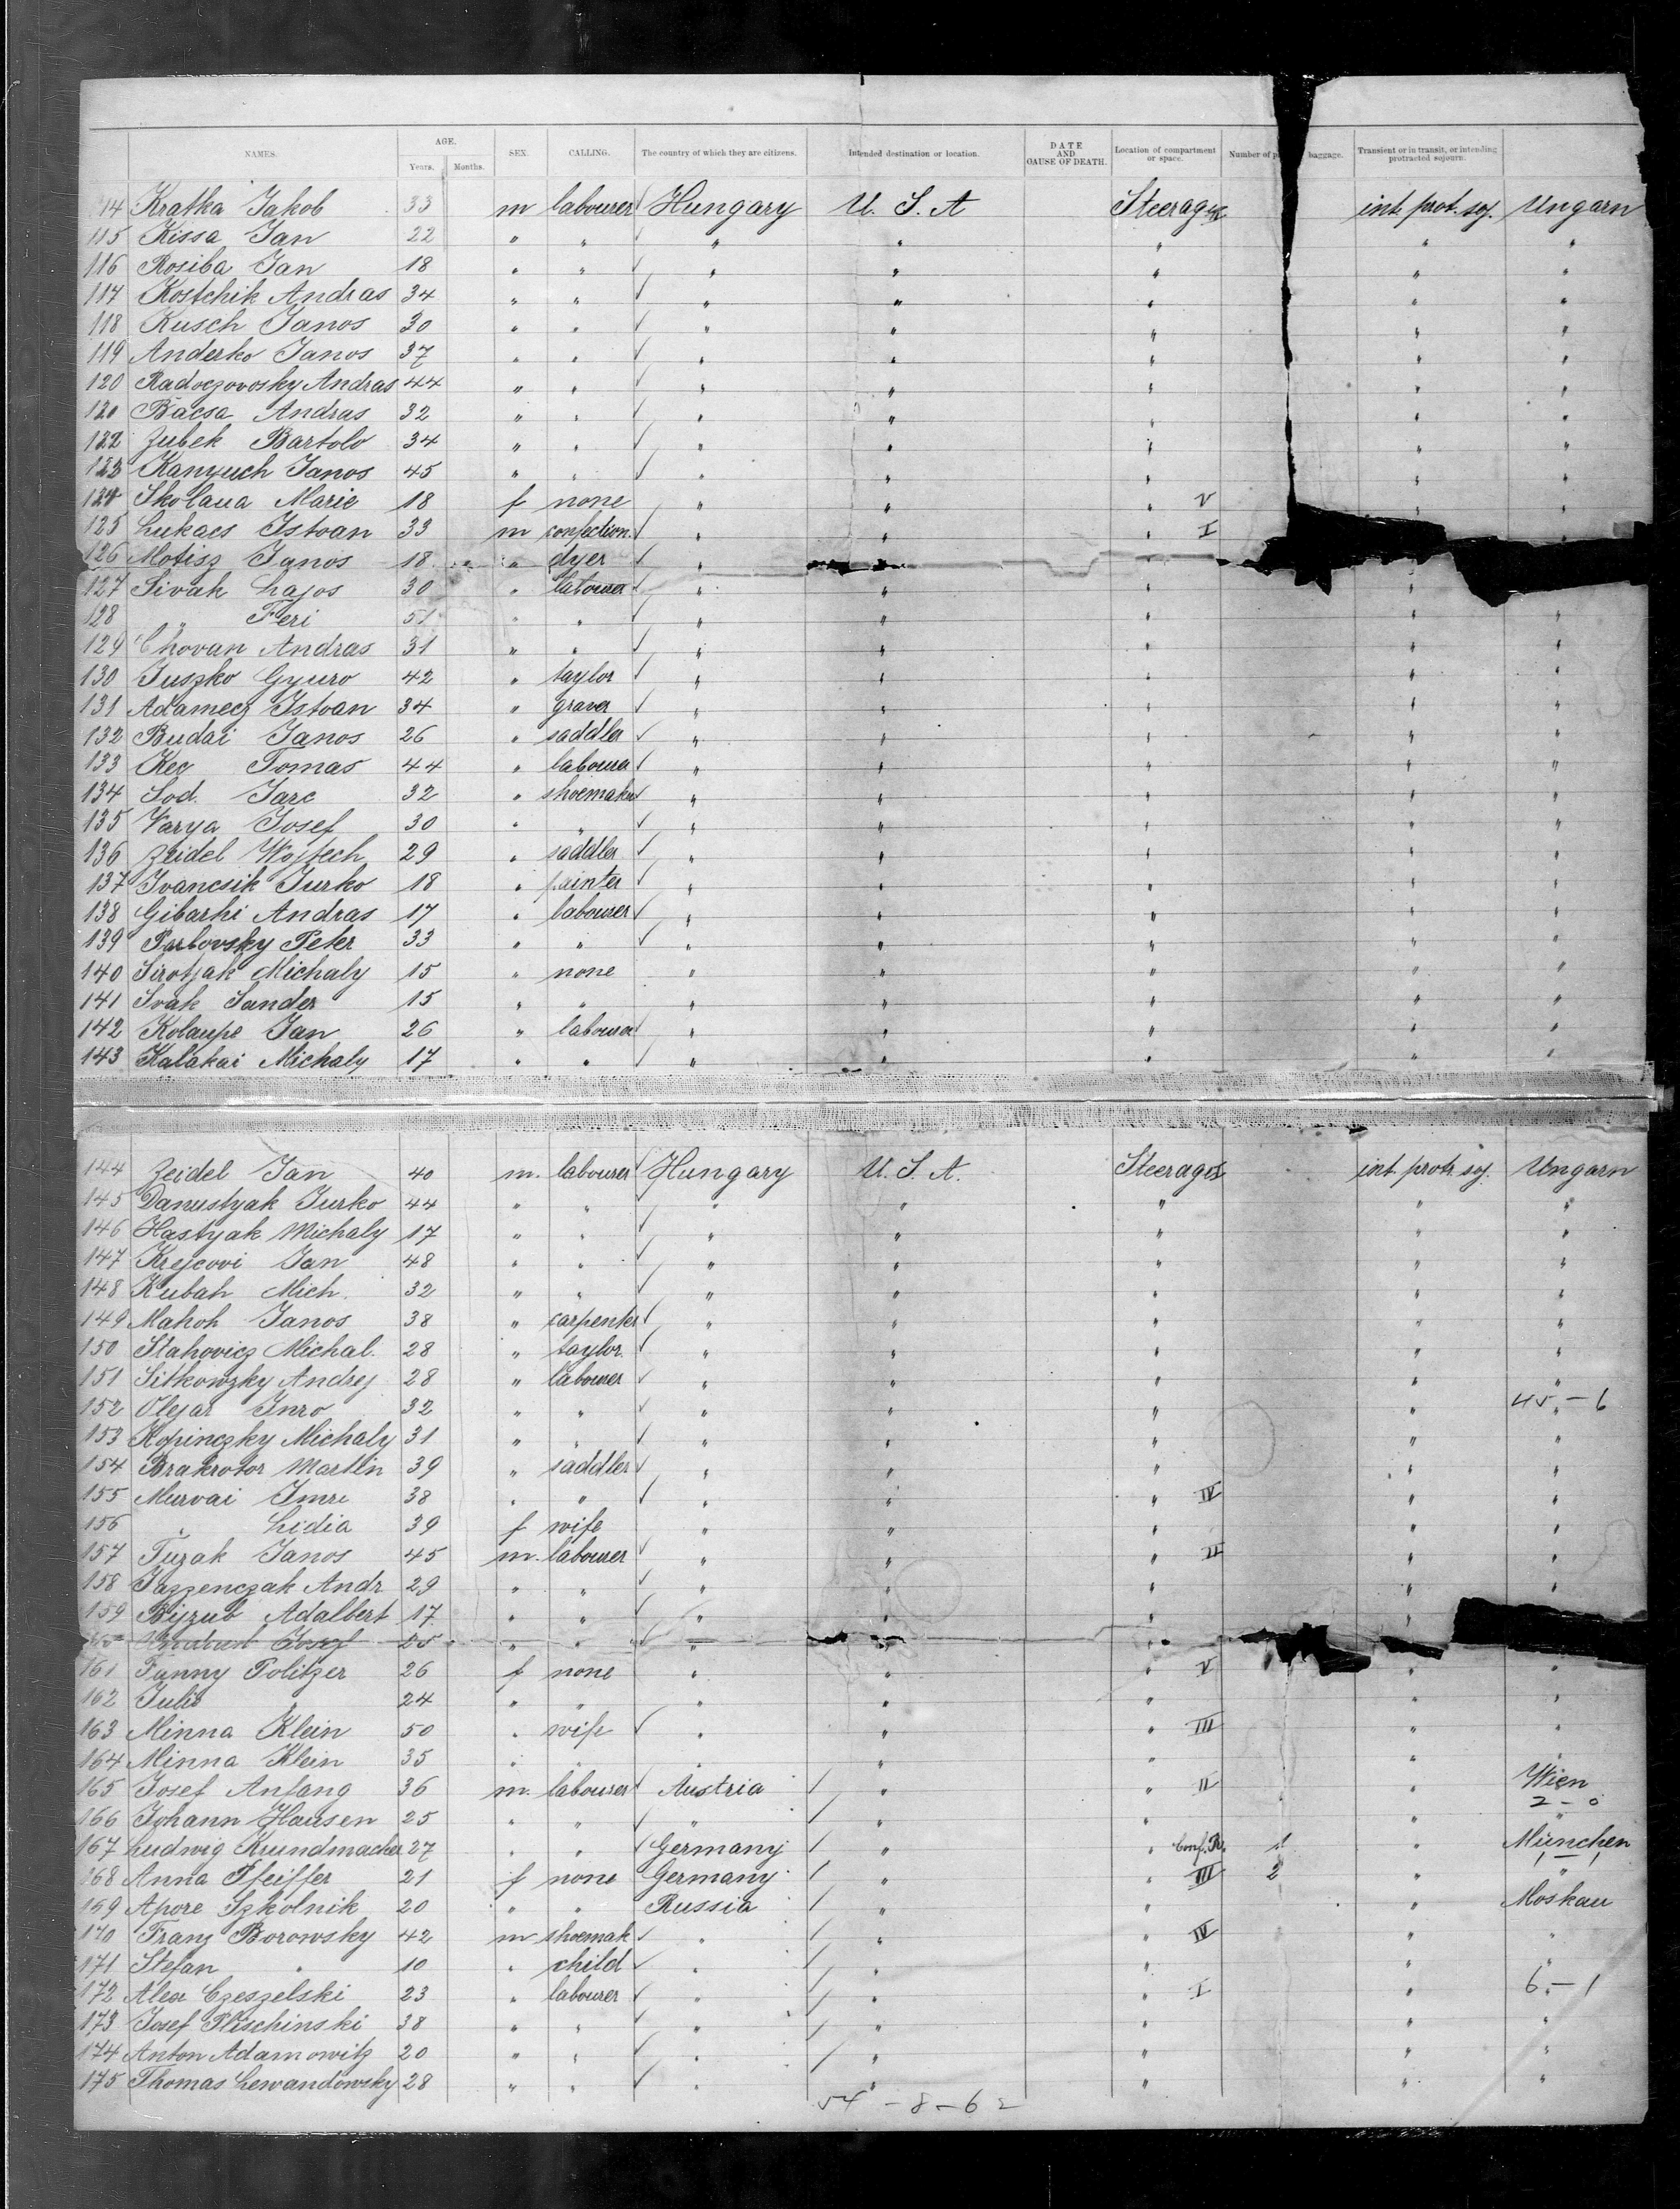 NAMES. AGE. Years. Months. SEX. CALLING. The country of which they are citizens. Intended destination or location. DATE AND CAUSE OF DEATH. Location of compartment or space. Number of baggage. Transient or in transit, or intending protracted sojourn.
114 Kratka Jakob 33 m labourer Hungary U. S. A Steerage int. prot. soj. Ungarn
115 Kissa Jan 22 " " " " " " "
116 Rosiba Jan 18 " " " " " " "
117 Kostchik Andras 34 " " " " " " "
118 Kusch Janos 30 " " " " " " "
119 Anderko Janos 37 " " " " " " "
120 Radoczovosky Andras 44 " " " " " " "
120 Bacsa Andras 32 " " " " " " "
122 Zubek Bartolo 34 " " " " " " "
123 Kanyuch Janos 45 " " " " " " "
124 Skolaua Marie 18 f none " " " V " "
125 Lukacs Istvan 33 m confection. " " " I " "
126 Motisz Janos 18 " dyer "
127 Sivak Lajos 30 " labourer " " " "
128 " Feri 51 " " " " " " "
129 Chovan Andras 31 " " " " " " "
130 Juszko Gyuro 42 " taylor " " " " "
131 Adamecz Istvan 34 " graver " " " " "
132 Budai Janos 26 " saddler " " " " "
133 Kec Tomas 44 " labourer " " " " "
134 Sod. Jarc 32 " shoemaker " " " " "
135 Varya Josef 30 " " " " " " "
136 Zeidel Wojtech 29 " saddler " " " " "
137 Ivancsik Jurko 18 " painter " " " " "
138 Gibarhi Andras 17 " labourer " " " " "
139 Parlovsky Peter 33 " " " " " " "
140 Sirotjak Michaly 15 " none " " " " "
141 Svak Sander 15 " " " " " " "
142 Kolaupe Jan 26 " labourer " " " " "
143 Kalakai Michaly 17 " " " " " " "
144 Zeidel Jan 40 m. labourer Hungary U. S. A. Steerage int. protr. soj. Ungarn
145 Danustyak Jurko 44 " " " " " " "
146 Hastyak Michaly 17 " " " " " " "
147 Krejcovi Jan 48 " " " " " " "
148 Kubah Mich. 32 " " " " " " "
149 Mahoh Janos 38 " carpenter " " " " "
150 Stahovicz Michal. 28 " taylor. " " " " "
151 Sitkowzky Andrej 28 " labourer " " " " "
152 Olejar Juro 32 " " " " " " 45 - 6
153 Kopinczky Michaly 31 " " " " " " "
154 Brakrotor Martin 39 " saddler " " " " "
155 Murvai Imre 38 " " " " " IV " "
156 " Lidia 39 f wife " " " " "
157 Tuzak Janos 45 m. labourer " " " II " "
158 Jazzenczak Andr 29 " " " " " " "
159 Bijzub Adalbert 17 " " " " " "
Josef 25 " " "
161 Fanny Politzer 26 f none " " " V " "
162 Julie " 24 " " " " " " "
163 Minna Klein 50 " wife " " " III " "
164 Minna Klein 35 " " " " " " "
165 Josef Anfang 36 m. labourer Austria " " II " Wien
2 - 0
166 Johann Hausen 25 " " " " " " "
167 Ludwig Krundmacher 27 " " Germany " " Conf. R. 1 " München
1 - 1
168 Anna Pfeiffer 21 f none Germany " " III 2 " "
169 Apore Szkolnik 20 " " Russia " " " Moskau
170 Franz Borowsky 42 m shoemak " " " IV " "
171 Stefan " 10 " child " " " " "
172 Alex Czeszelski 23 " labourer " " " I " 6 - 1
173 Josef Plischinski 38 " " " " " " "
174 Anton Adamowitz 20 " " " " " " "
175 Thomas Lewandowsky 28 " " " " " " "
54 - 8 - 62